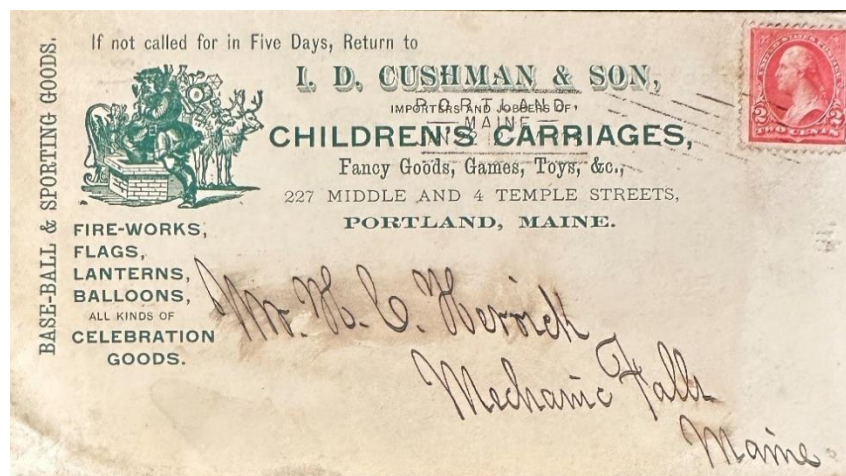 BASE-BALL & SPORTING GOODS.
If not called for in Five Days, Return to
I. D. CUSHMAN & SON,
IMPORTERS AND JOBBERS OF,
CHILDREN'S CARRIAGES,
Fancy Goods, Games, Toys, &c.,
227 MIDDLE AND 4 TEMPLE STREETS,
PORTLAND, MAINE.
FIRE-WORKS,
FLAGS,
LANTERNS,
BALLOONS,
ALL KINDS OF
CELEBRATION
GOODS.
PORTLAND,
MAINE
2 2
TWO CENTS
Mr. H. C. Herrick
Mechanic Falls
Maine